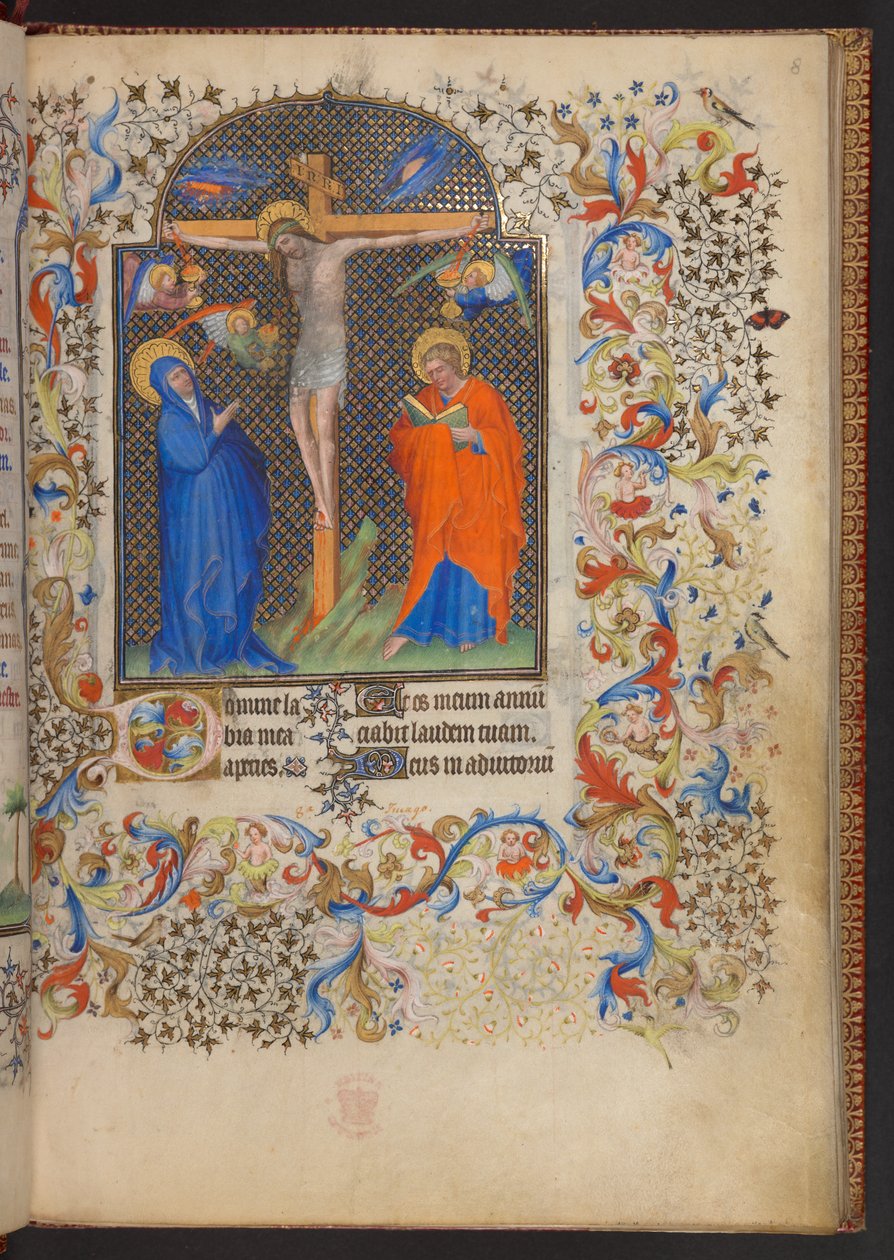 8
INRI
Domine la
bia mea
aperies.
Et os meum annū
ciabit laudem tuam.
Deus in adiutoriū
8ª Imago.